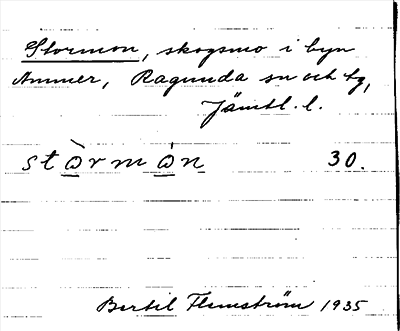 Stormon, skogsmo i byn
Ammer, Ragunda sn och tg,
Jämtl. l.
stòrmón 30.
Bertil Flemström 1935